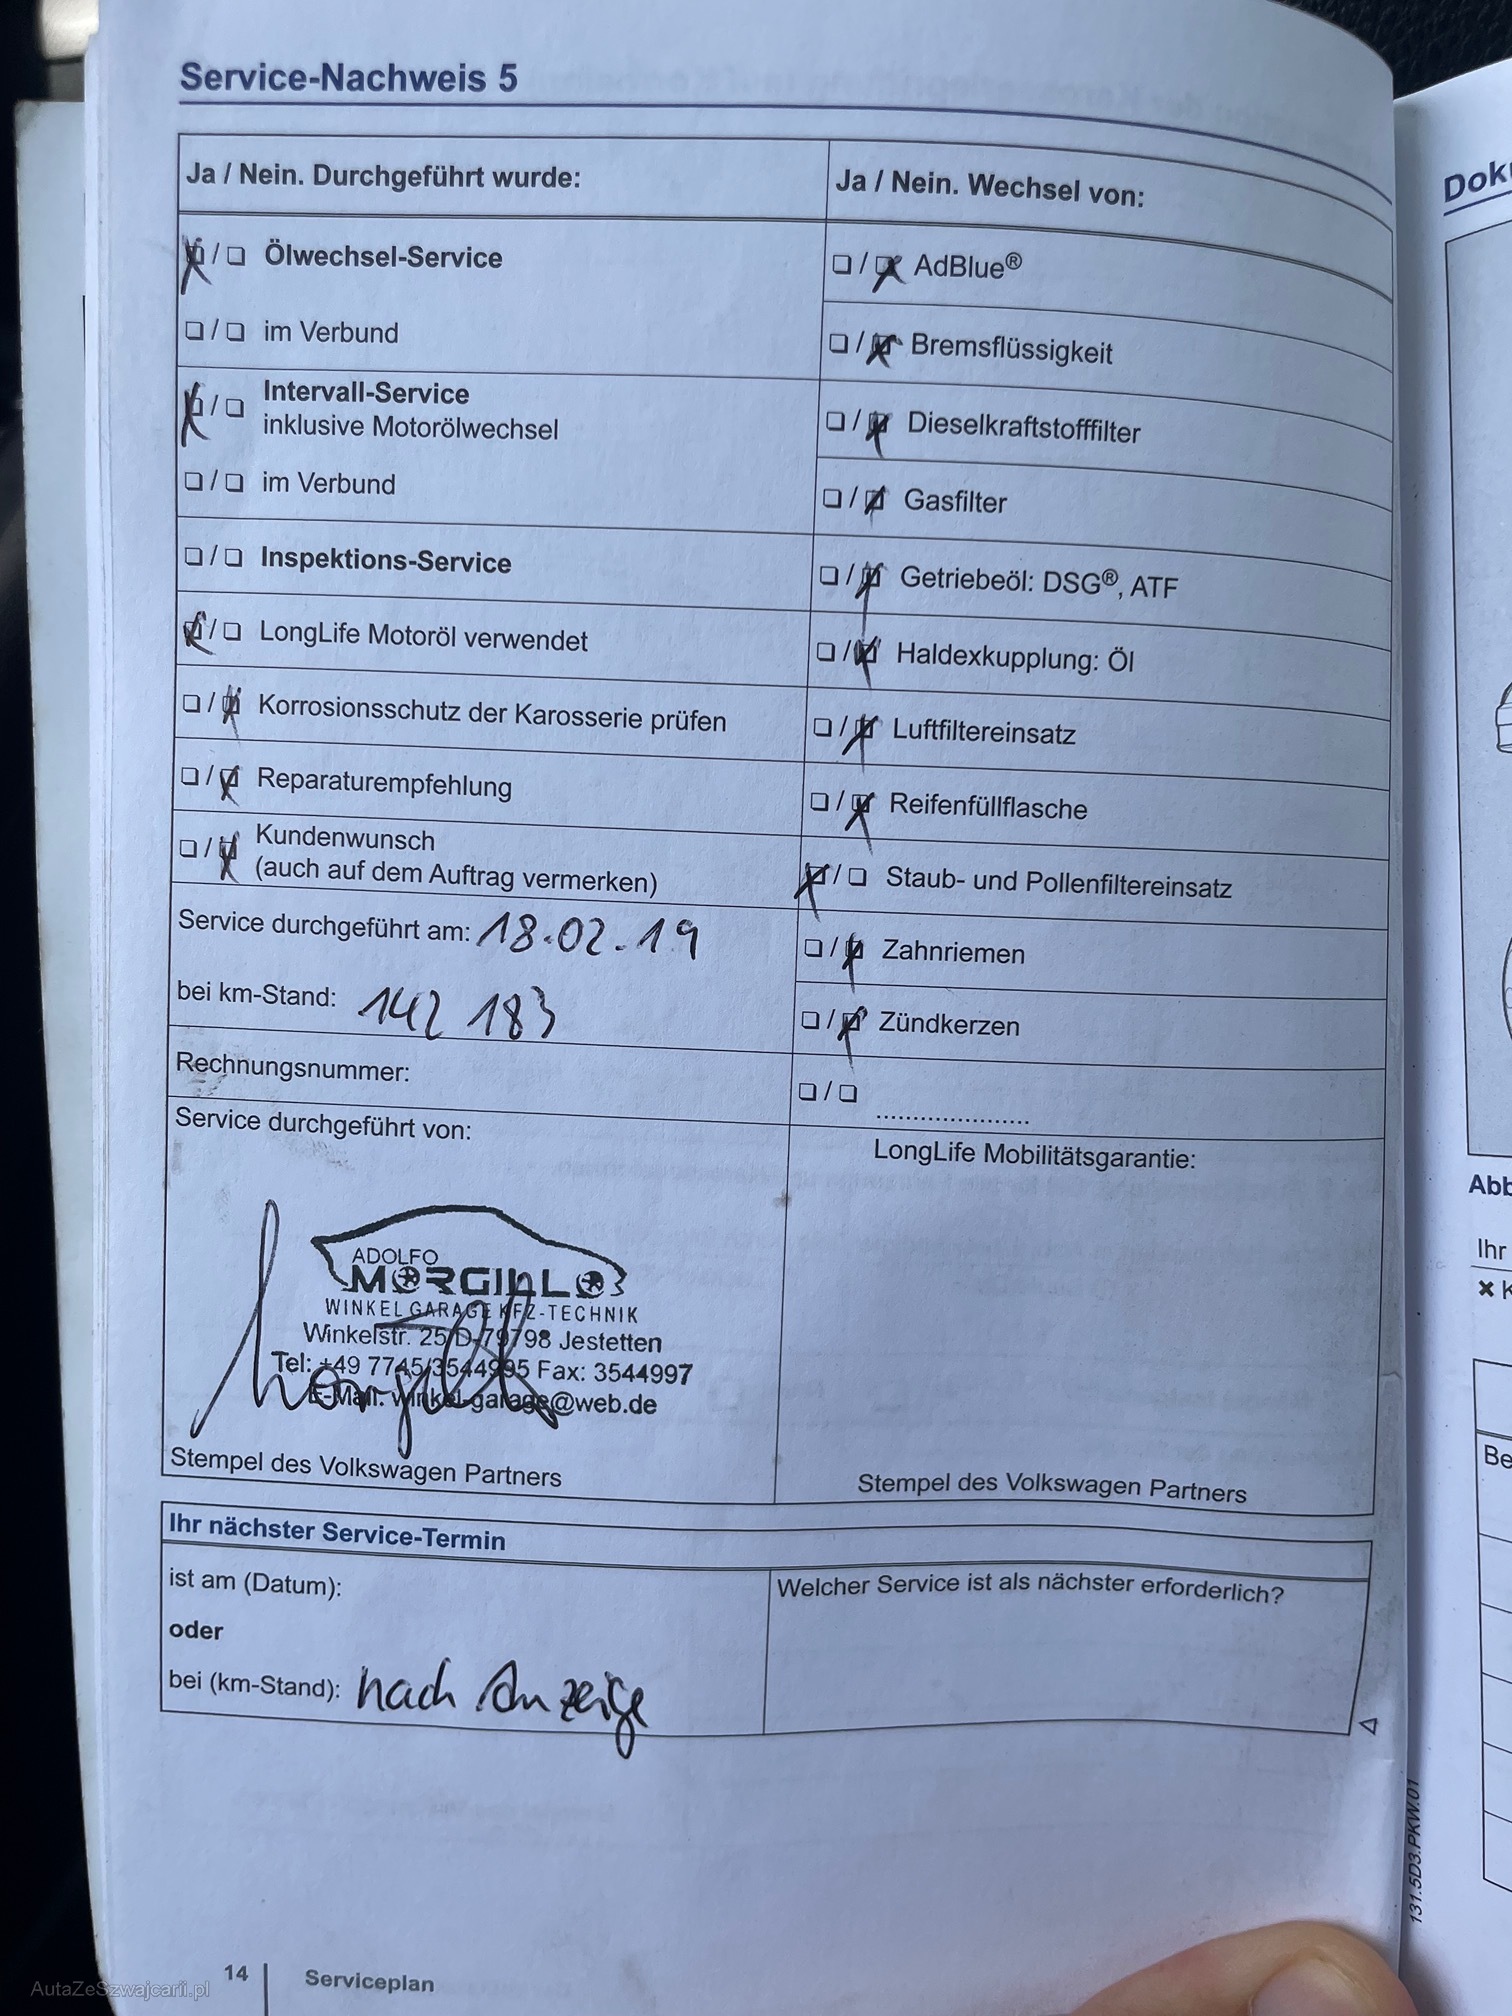 Service-Nachweis 5
Ja / Nein. Durchgeführt wurde:
☒ / ☐ Ölwechsel-Service
☐ / ☐ im Verbund
☒ / ☐ Intervall-Service
inklusive Motorölwechsel
☐ / ☐ im Verbund
☐ / ☐ Inspektions-Service
☒ / ☐ LongLife Motoröl verwendet
☐ / ☒ Korrosionsschutz der Karosserie prüfen
☐ / ☒ Reparaturempfehlung
☐ / ☒ Kundenwunsch
(auch auf dem Auftrag vermerken)
Service durchgeführt am: 18.02.19
bei km-Stand: 142 183
Rechnungsnummer:
Service durchgeführt von:
ADOLFO
MORGILLO
WINKEL GARAGE KFZ-TECHNIK
Winkelstr. 25/D-79798 Jestetten
Tel: +49 7745/3544995 Fax: 3544997
E-Mail: winkel-garage@web.de
Stempel des Volkswagen Partners
Ja / Nein. Wechsel von:
☐ / ☒ AdBlue®
☐ / ☒ Bremsflüssigkeit
☐ / ☒ Dieselkraftstofffilter
☐ / ☒ Gasfilter
☐ / ☒ Getriebeöl: DSG®, ATF
☐ / ☒ Haldexkupplung: Öl
☐ / ☒ Luftfiltereinsatz
☐ / ☒ Reifenfüllflasche
☒ / ☐ Staub- und Pollenfiltereinsatz
☐ / ☒ Zahnriemen
☐ / ☒ Zündkerzen
☐ / ☐ .....................
LongLife Mobilitätsgarantie:
Stempel des Volkswagen Partners
Ihr nächster Service-Termin
ist am (Datum):
oder
bei (km-Stand): nach Anzeige
Welcher Service ist als nächster erforderlich?
131.5D3.PKW.01
14 | Serviceplan
AutaZeSzwajcarii.pl
Ihr